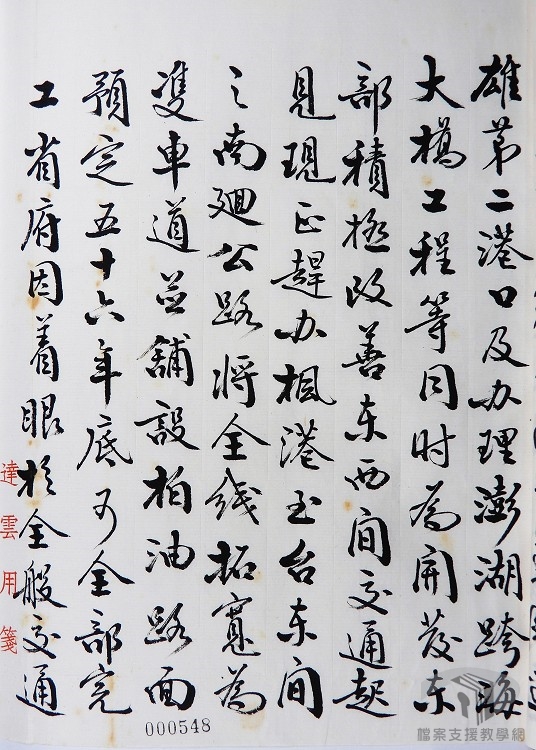 雄第二港口及办理澎湖跨海
大橋工程等同时為開發东
部積極改善东西間交通起
見現正趕办楓港至台东間
之南廻公路将全线拓寬為
雙車道並舖設柏油路面
預定五十六年底可全部完
工省府因着眼於全般交通
達雲用箋
000548
檔案支援教學網